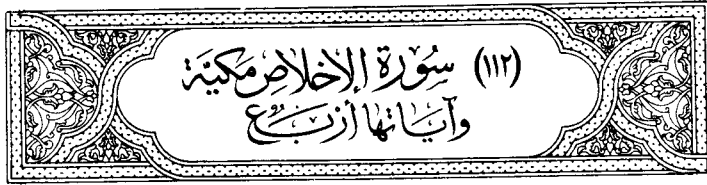 (١١٢) سُورَة الإِخلَاصِ مَكيَّة
وَآيَاتهَا أَرْبَع